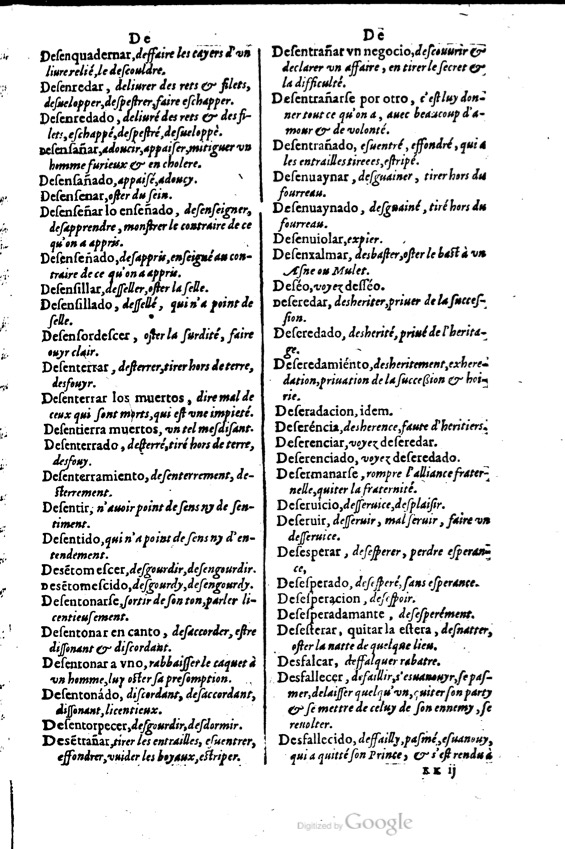 De
Desenquadernar, deffaire les cayers d'vn
liure relié, le descouldre.
Desenredar, deliurer des rets & filets,
desuelopper, despestrer, faire eschapper.
Desenredado, deliuré des rets & des fi-
lets, eschappé, despestré, desueloppè.
Desensañar, adoucir, appaiser, mitiguer vn
homme furieux & en cholere.
Desensañado, appaisé, adoucy.
Desensenar, oster du sein.
Desenseñar lo enseñado, desenseigner,
desapprendre, monstrer le contraire de ce
qu'on a appris.
Desenseñado, desappris, enseigné au con-
traire de ce qu'on a appris.
Desensillar, desseller, oster la selle.
Desensillado, dessellé, qui n'a point de
selle.
Desensordescer, oster la surdité, faire
ouyr clair.
Desenterrar, desterrer, tirer hors de terre,
desfouyr.
Desenterrar los muertos, dire mal de
ceux qui sont morts, qui est vne impieté.
Desentierra muertos, vn tel mesdisant.
Desenterrado, desterré, tiré hors de terre,
desfouy.
Desenterramiento, desenterrement, de-
sterrement.
Desentir, n'auoir point de sens ny de sen-
timent.
Desentido, qui n'a point de sens ny d'en-
tendement.
Desētomescer, desgourdir, desengourdir.
Desētomescido, desgourdy, desengourdy.
Desentonarse, sortir de son ton, parler li-
centieusement.
Desentonar en canto, desaccorder, estre
dissonant & discordant.
Desentonar a vno, rabbaisser le caquet à
vn homme, luy oster sa presomption.
Desentonádo, discordant, desaccordant,
dissonant, licentieux.
Desentorpecer, desgourdir, desdormir.
Desētrañar, tirer les entrailles, esuentrer,
effondrer, vuider les boyaux, estriper.
De
Desentrañar vn negocio, descouurir &
declarer vn affaire, en tirer le secret &
la difficulté.
Desentrañarse por otro, c'est luy don-
ner tout ce qu'on a, auec beaucoup d'a-
mour & de volonté.
Desentrañado, esuentré, effondré, qui a
les entrailles tireees, estripé.
Desenuaynar, desguainer, tirer hors du
fourreau.
Desenuaynado, desguainé, tiré hors du
fourreau.
Desenuiolar, expier.
Desenxalmar, desbaster, oster le bast à vn
Asne ou Mulet.
Deséo, voyez desséo.
Deseredar, desheriter, priuer de la succes-
sion.
Deseredado, desherité, priué de l'herita-
ge.
Deseredamiénto, desheritement, exhere-
dation, priuation de la succession & hoi-
rie.
Deseradacion, idem.
Deseréncia, desherence, faute d'heritiers.
Deserenciar, voyez deseredar.
Deserenciado, voyez deseredado.
Desermanarse, rompre l'alliance frater-
nelle, quiter la fraternité.
Deseruicio, desseruice, desplaisir.
Deseruir, desseruir, mal seruir, faire vn
desseruice.
Desesperar, desesperer, perdre esperan-
ce,
Desesperado, desesperé, sans esperance.
Desesperacion, desespoir.
Desesperadamante, desesperément.
Desesterar, quitar la estera, desnatter,
oster la natte de quelque lieu.
Desfalcar, deffalquer rabatre.
Desfallecer, defaillir, s'esuanouyr, se pas-
mer, delaisser quelqu'vn, quiter son party
& se mettre de celuy de son ennemy, se
reuolter.
Desfallecido, deffailly, pasmé, esuanouy,
qui a quitté son Prince, & s'est rendu à
KK ij
Digitized by Google